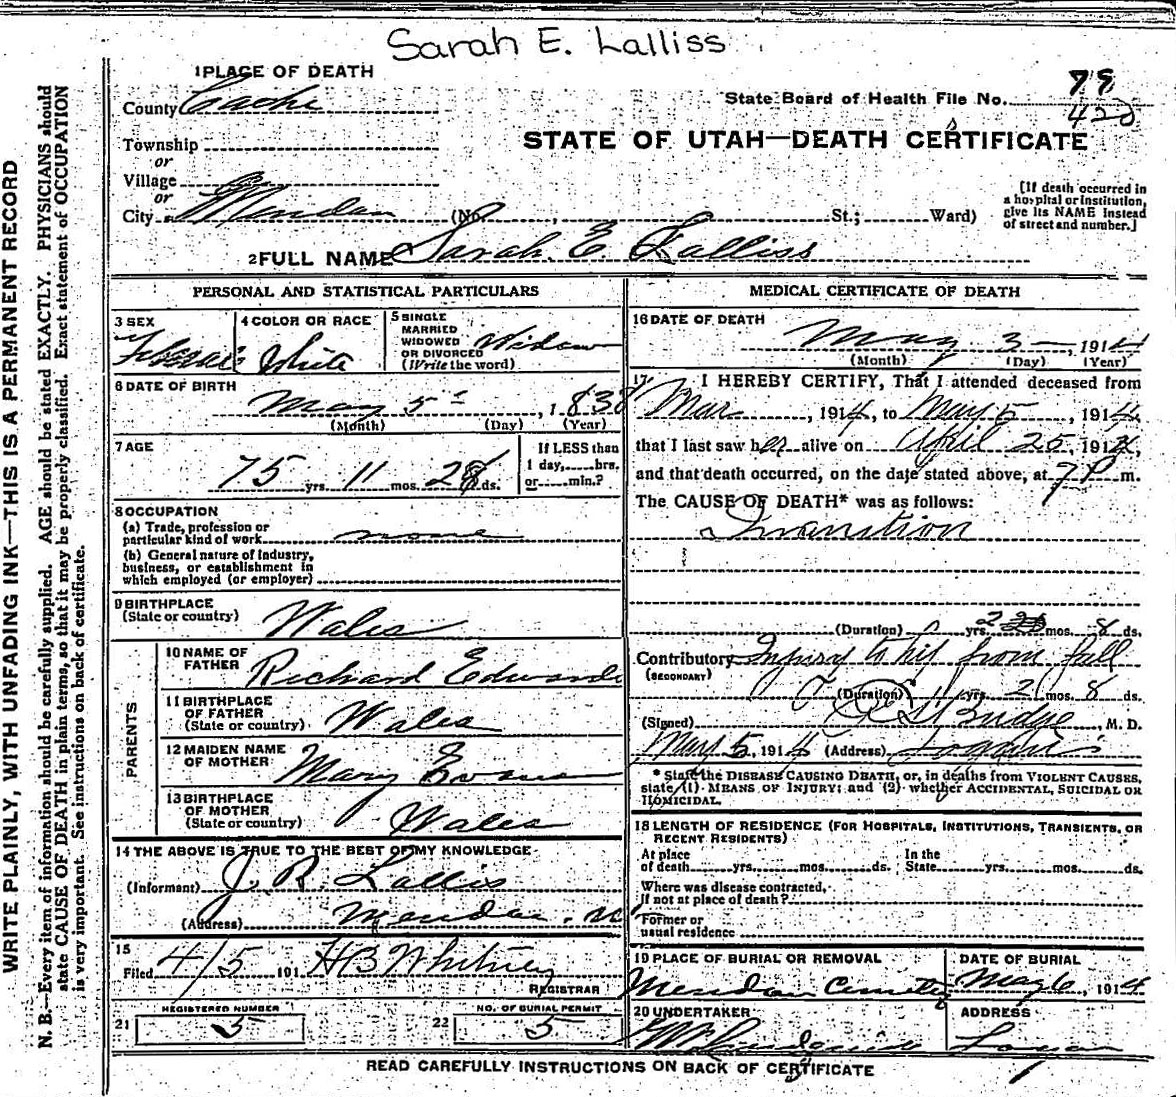 Sarah E. Lalliss
1 PLACE OF DEATH
County Cache
State Board of Health File No. 79
420
STATE OF UTAH—DEATH CERTIFICATE
Township
or
Village
or
City Mendon (No. , St.; Ward)
[If death occurred in
a hospital or institution,
give its NAME instead
of street and number.]
2 FULL NAME Sarah. E. Lalliss
PERSONAL AND STATISTICAL PARTICULARS
3 SEX Female
4 COLOR OR RACE White
5 SINGLE
MARRIED
WIDOWED
OR DIVORCED
(Write the word) Widow
6 DATE OF BIRTH
May 5 , 1838
(Month) (Day) (Year)
7 AGE
75 yrs. 11 mos. 28 ds.
If LESS than
1 day, hrs.
or min.?
8 OCCUPATION
(a) Trade, profession or
particular kind of work none
(b) General nature of industry,
business, or establishment in
which employed (or employer)
9 BIRTHPLACE
(State or country) Wales
PARENTS
10 NAME OF
FATHER Richard Edwards
11 BIRTHPLACE
OF FATHER
(State or country) Wales
12 MAIDEN NAME
OF MOTHER Mary Evans
13 BIRTHPLACE
OF MOTHER
(State or country) Wales
14 THE ABOVE IS TRUE TO THE BEST OF MY KNOWLEDGE
(Informant) J. R. Lallis
(Address) Mendon.
15
Filed 4/5 191 H B Whitney
REGISTRAR
21 REGISTERED NUMBER 5
22 NO. OF BURIAL PERMIT 5
MEDICAL CERTIFICATE OF DEATH
16 DATE OF DEATH
May 3 , 1914
(Month) (Day) (Year)
17 I HEREBY CERTIFY, That I attended deceased from
Mar , 1914, to May 5 , 1914
that I last saw her alive on April 25 1914,
and that death occurred, on the date stated above, at 7 P m.
The CAUSE OF DEATH* was as follows:
Inanition
(Duration) yrs. 2 mos. 8 ds.
Contributory Injury to hip from fall
(SECONDARY)
(Duration) yrs. 2 mos. 8 ds.
(Signed) Budge, M. D.
May 5 1914 (Address) Logan
* State the DISEASE CAUSING DEATH, or, in deaths from VIOLENT CAUSES,
state (1) MEANS OF INJURY; and (2) whether ACCIDENTAL, SUICIDAL OR
HOMICIDAL.
18 LENGTH OF RESIDENCE (FOR HOSPITALS, INSTITUTIONS, TRANSIENTS, OR
RECENT RESIDENTS)
At place
of death yrs. mos. ds.
In the
State yrs. mos. ds.
Where was disease contracted,
If not at place of death?
Former or
usual residence
19 PLACE OF BURIAL OR REMOVAL
Mendon Cemetery
DATE OF BURIAL
May 6, 1914
20 UNDERTAKER
ADDRESS
Logan
READ CAREFULLY INSTRUCTIONS ON BACK OF CERTIFICATE
WRITE PLAINLY, WITH UNFADING INK—THIS IS A PERMANENT RECORD
N. B.—Every item of information should be carefully supplied. AGE should be stated EXACTLY. PHYSICIANS should
state CAUSE OF DEATH in plain terms, so that it may be properly classified. Exact statement of OCCUPATION
is very important. See instructions on back of certificate.